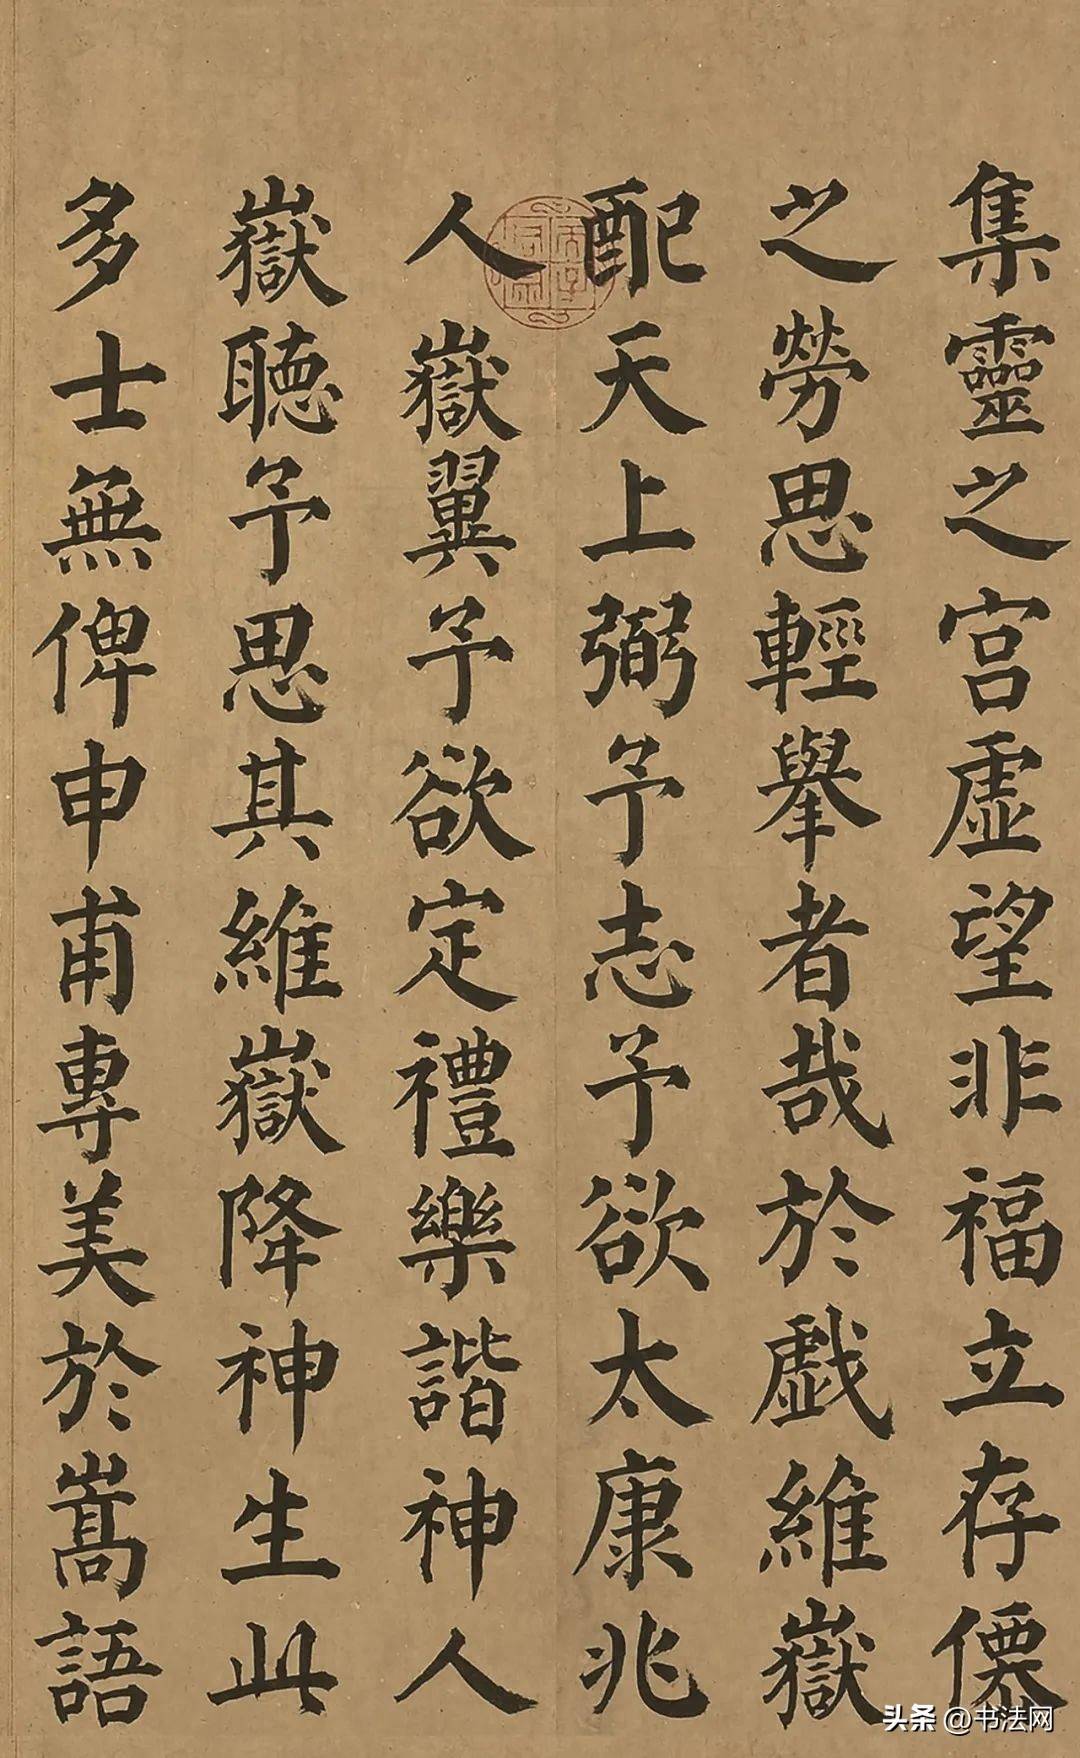 集靈之宮虛望非福立存僊
之勞思輕舉者哉於戲維嶽
配天上弼予志予欲太康兆
人嶽翼予欲定禮樂諧神人
嶽聽予思其維嶽降神生此
多士無俾申甫專美於嵩語
头条 @书法网